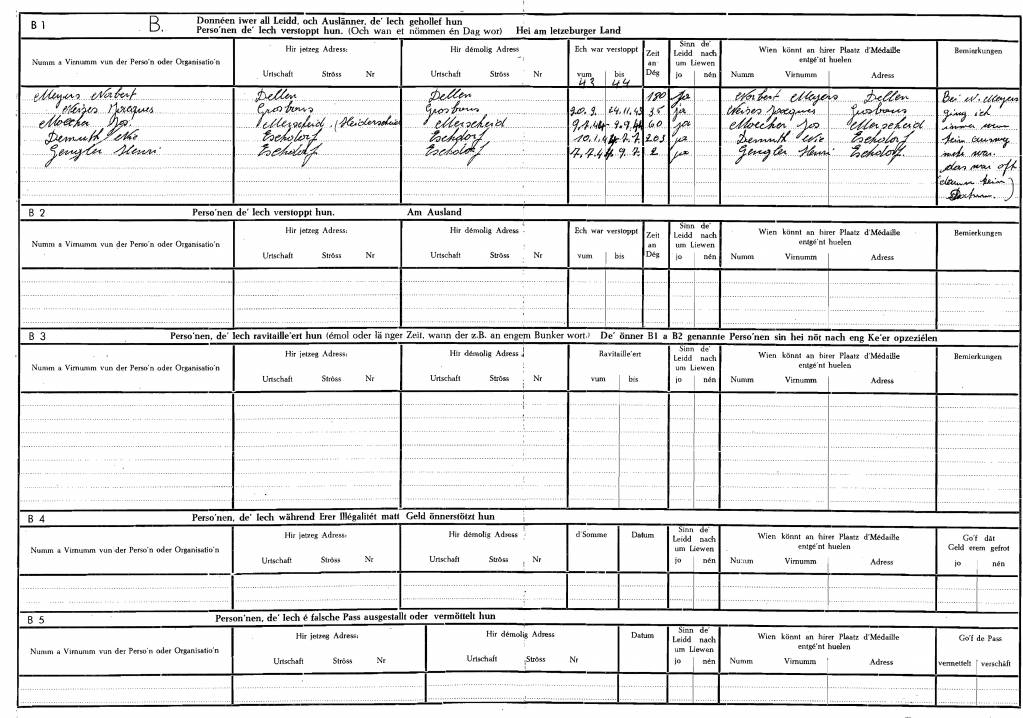 B 1 B. Donnéen iwer all Leidd, och Auslänner, de' Iech gehollef hun
Perso'nen de' Iech verstoppt hun. (Och wan et nömmen én Dag wor) Hei am letzeburger Land
Numm a Virnumm vun der Perso'n oder Organisatio'n Hir jetzeg Adress: Hir démolig Adress Ech war verstoppt Zeit an Dég Sinn de' Leidd nach um Liewen Wien könnt an hirer Plaatz d'Médaille entgé'nt huelen Bemierkungen
Urtschaft Ströss Nr Urtschaft Ströss Nr vum bis jo nén Numm Virnumm Adress
43 44
Meyers Norbert Dellen Dellen 180 ja Norbert Meyers Dellen Bei N. Meyers
Weises Jacques Grosbous Grosbous 20.9. 24.11.43 35 ja Weises Jacques Grosbous ging ich
Moecher Jos. Merscheid (Heiderscheid Merscheid 9.7.44 9.9.44 60 ja Moecher Jos Merscheid immer wenn
Demuth Eschdorf Eschdorf 10.1.44 7.7. 203 ja Demuth Eschdorf kein ausweg
Gengler Henri Eschdorf Eschdorf 7.7.44 9.7. 2 ja Gengler Henri Eschdorf. mehr war.
das war oft
(darum kein)
Datum.
B 2 Perso'nen de' Iech verstoppt hun. Am Ausland
Numm a Virnumm vun der Perso'n oder Organisatio'n Hir jetzeg Adress: Hir démolig Adress Ech war verstoppt Zeit an Dég Sinn de' Leidd nach um Liewen Wien könnt an hirer Plaatz d'Médaille entgé'nt huelen Bemierkungen
Urtschaft Ströss Nr Urtschaft Ströss Nr vum bis jo nén Numm Virnumm Adress
B 3 Perso'nen, de' Iech ravitaille'ert hun (émol oder lä nger Zeit, wann der z.B. an engem Bunker wort.) De' önner B1 a B2 genannte Perso'nen sin hei nöt nach eng Ke'er opzeziélen
Numm a Virnumm vun der Perso'n oder Organisatio'n Hir jetzeg Adress: Hir démolig Adress Ravitaille'ert Sinn de' Leidd nach um Liewen Wien könnt an hirer Plaatz d'Médaille entgé'nt huelen Bemierkungen
Urtschaft Ströss Nr Urtschaft Ströss Nr vum bis jo nén Numm Virnumm Adress
B 4 Perso'nen, de' Iech während Erer Illégalitét matt Geld önnerstötzt hun
Numm a Virnumm vun der Perso'n oder Organisatio'n Hir jetzeg Adress: Hir démolig Adress d'Somme Datum Sinn de' Leidd nach um Liewen Wien könnt an hirer Plaatz d'Médaille entgé'nt huelen Go'f dät Geld erem gefrot
Urtschaft Ströss Nr Urtschaft Ströss Nr jo nén Numm Virnumm Adress jo nén
B 5 Person'nen, de' Iech é falsche Pass ausgestallt oder vermöttelt hun
Numm a Virnumm vun der Perso'n oder Organisatio'n Hir jetzeg Adress: Hir démolig Adress Datum Sinn de' Leidd nach um Liewen Wien könnt an hirer Plaatz d'Médaille entgé'nt huelen Go'f de Pass
Urtschaft Ströss Nr Urtschaft Ströss Nr jo nén Numm Virnumm Adress vermettelt verschäft